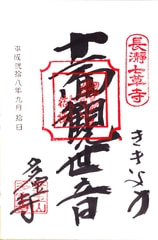 長瀞七草寺
ききょう
十一面観世音
多宝寺
平成弐拾八年九月拾日